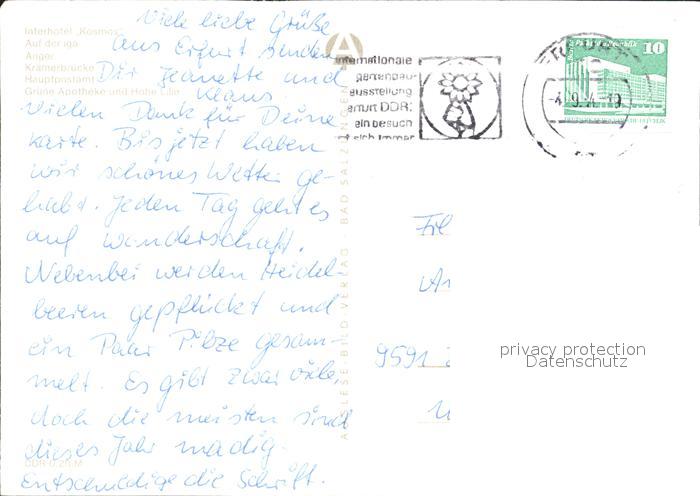 Interhotel „Kosmos“
Auf der iga
Anger
Krämerbrücke
Hauptpostamt
Grüne Apotheke und Hohe Lilie
Viele liebe Grüße
aus Erfurt senden
Dir Jeanette und
Klaus.
Vielen Dank für Deine
Karte. Bis jetzt haben
wir schönes Wetter ge-
habt. Jeden Tag geht es
auf Wanderschaft.
Nebenbei werden Heidel-
beeren gepflückt und
ein Paar Pilze gesam-
melt. Es gibt zwar viele,
doch die meisten sind
dieses Jahr madig.
Entschuldige die Schrift.
DDR 0,20 M
AUSLESE-BILD-VERLAG · BAD SALZUNGEN
A
internationale
gartenbau-
ausstellung
erfurt DDR:
ein besuch
sich immer
10
9591
privacy protection
Datenschutz